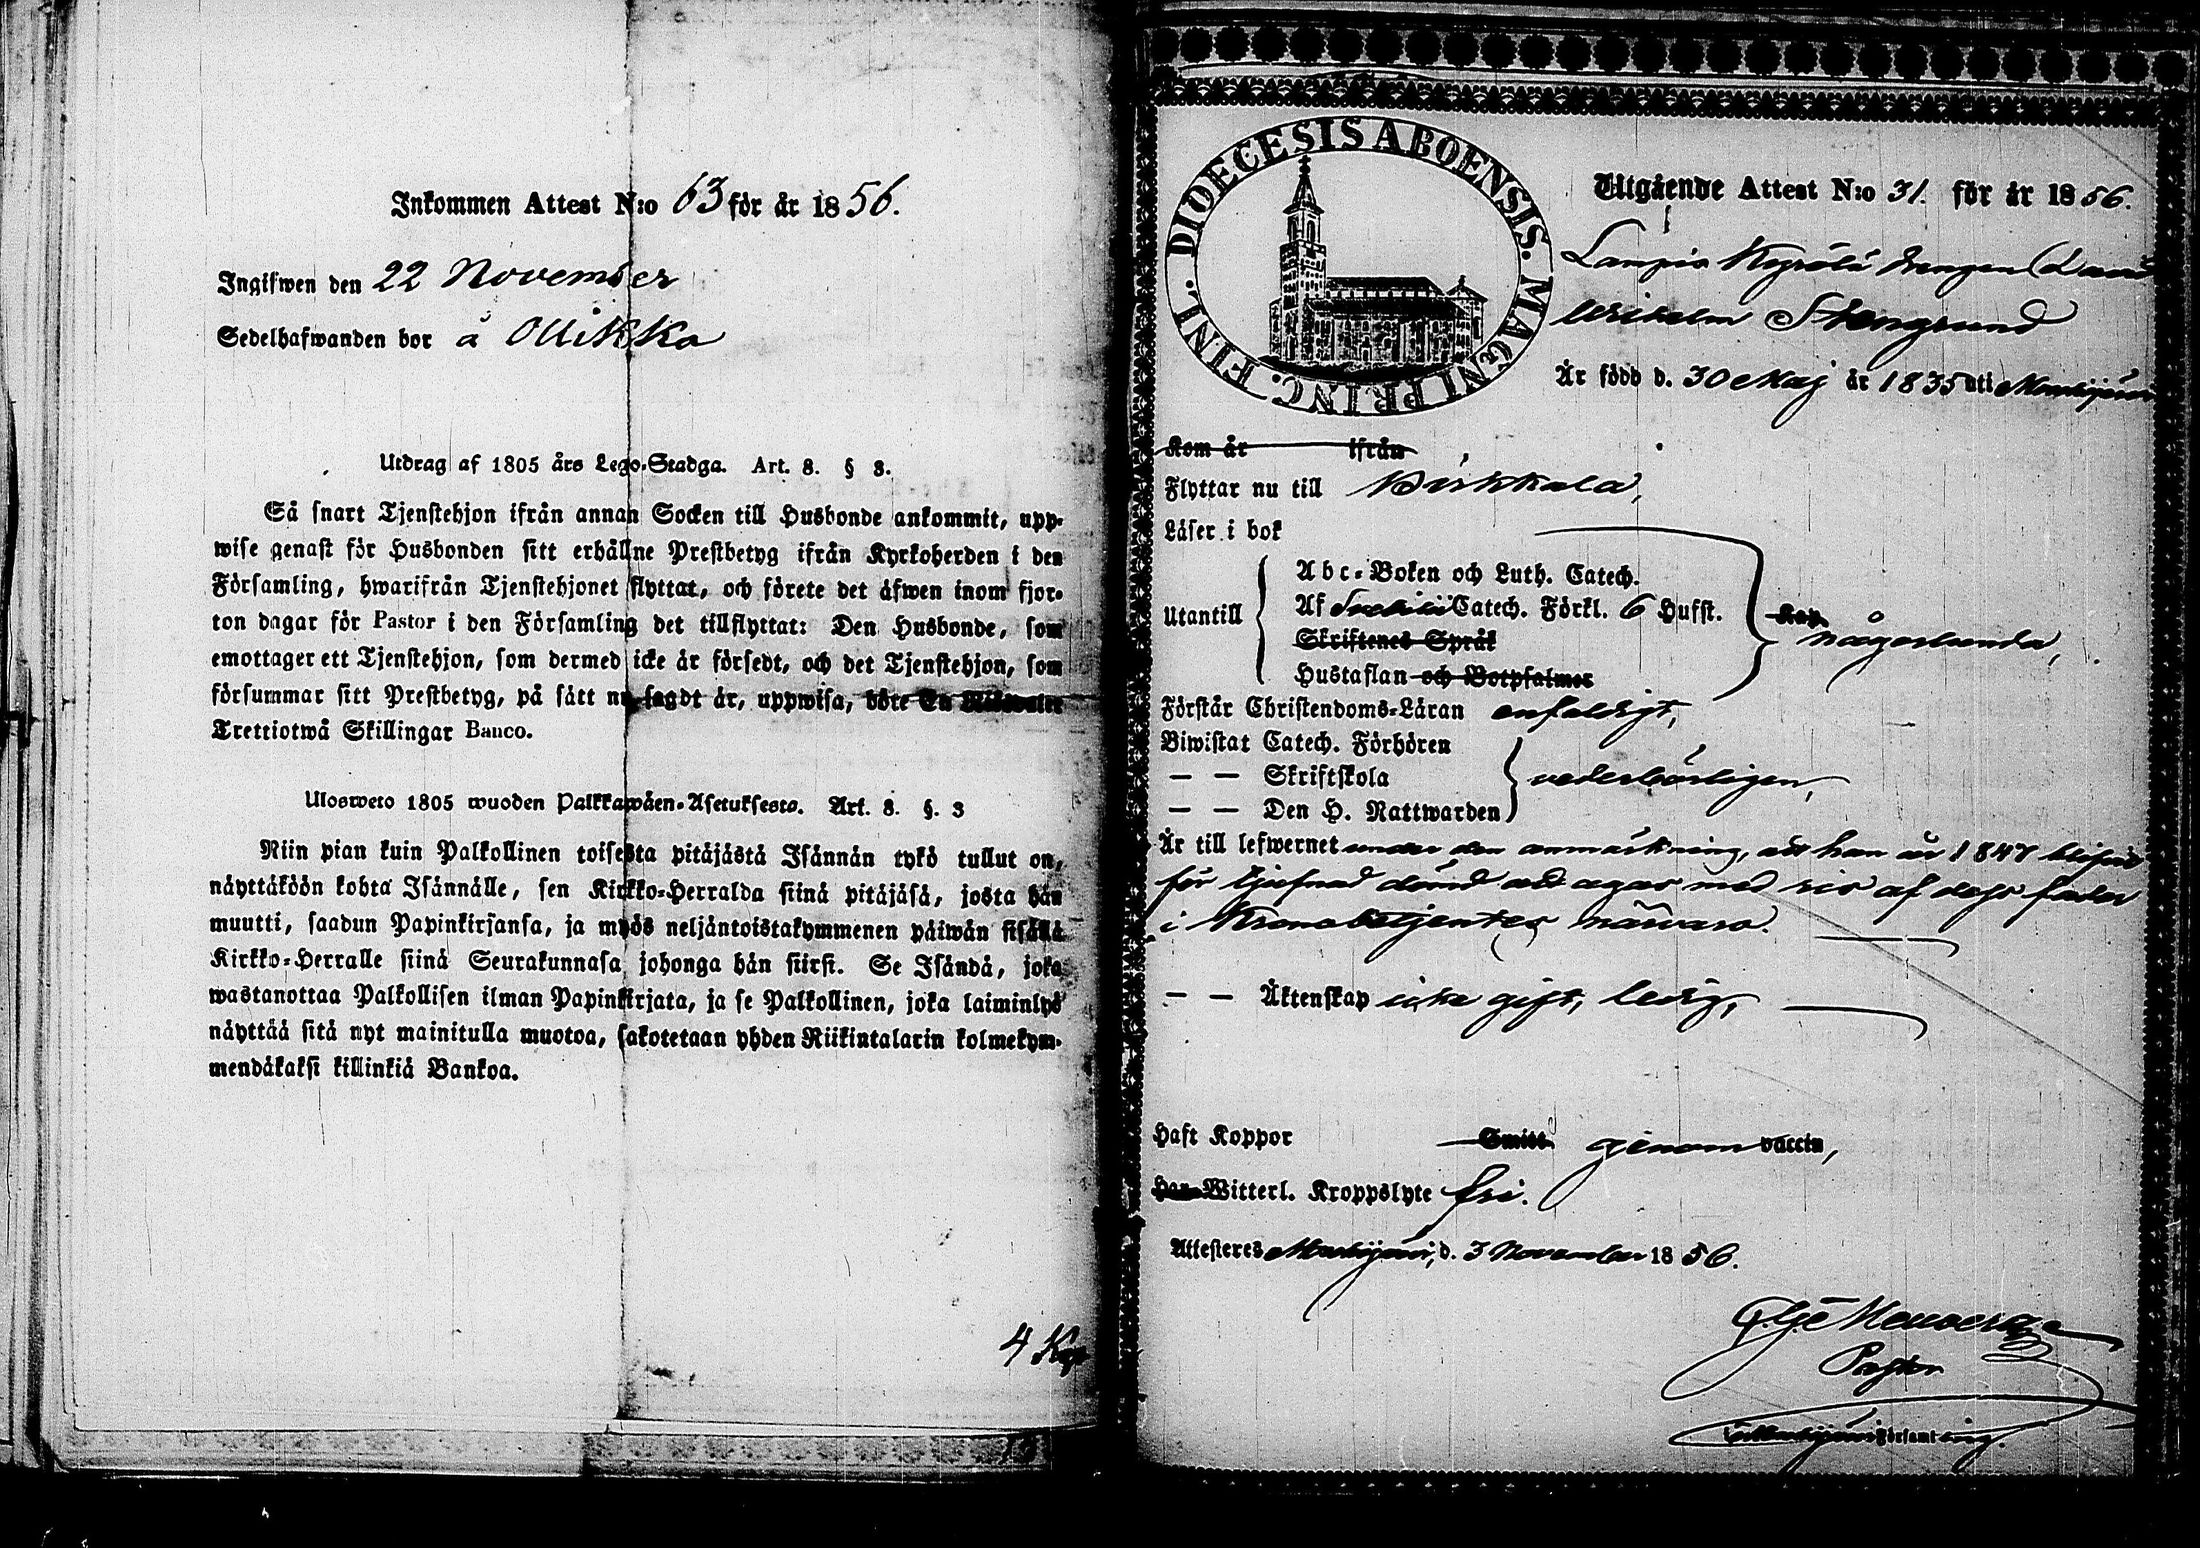 Inkommen Attest N:o 63 för år 1856.
Ingifwen den 22 November
Sedelhafwanden bor å Ollikka
Utdrag af 1805 års Lego-Stadga. Art. 8. § 3.
Så snart Tjenstehjon ifrån annan Socken till Husbonde ankommit, upp-
wise genast för Husbonden sitt erhållne Prestbetyg ifrån Kyrkoherden i den
Församling, hwarifrån Tjenstehjonet flyttat, och förete det äfwen inom fjor-
ton dagar för Pastor i den Församling det tillflyttat: Den Husbonde, som
emottager ett Tjenstehjon, som dermed icke är försedt, och det Tjenstehjon, som
försummar sitt Prestbetyg, på sätt nu sagdt är, uppwisa, böte En Riksdaler
Trettiotwå Skillingar Banco.
Ulosweto 1805 wuoden Palkkawäen-Asetuksesta. Art. 8. §. 3
Niin pian kuin Palkollinen toisesta pitäjästä Isännän tykö tullut on,
näyttäköön kohta Isännälle, sen Kirkko-Herralda siinä pitäjäsä, josta hän
muutti, saadun Papinkirjansa, ja myös neljäntoistakymmenen päiwän sisällä
Kirkko-Herralle siinä Seurakunnasa johonga hän siirsi. Se Isändä, joka
wastanottaa Palkollisen ilman Papinkirjata, ja se Palkollinen, joka laiminlyö
näyttää sitä nyt mainitulla muotoa, sakotetaan yhden Riikintalarin kolmekym-
mendäkaksi killinkiä Bankoa.
4 Kop
DIOECESIS ABOENSIS. MAGNI PRINC. FINL.
Utgående Attest N:o 31. för år 1856.
Drengen David
Wilhelm Stengrund
Är född d. 30 Maj år 1835 uti
Kom år ifrån
Flyttar nu till Birkkala,
Läser i bok
Utantill
Abc-Boken och Luth. Catech.
Af Catech. Förkl. 6 Hufst.
Skriftenes Språk
Hustaflan och Botpsalmer
någorlunda,
Förstår Christendoms-Läran enfaldigt,
Biwistat Catech. Förhören
— — Skriftskola
— — Den H. Nattwarden
vederbörligen,
Är till lefwernet under den anmärkning, att han år 1847 blifvit
för tjufnad dömd att agas med ris af dess fader
i Kronobetjentes närvaro.
— — Äktenskap icke gift, ledig,
Haft Koppor Smitt genom vaccin,
Har Witterl. Kroppslyte fri.
Attesteres d. 3 November 1856.
Pastor
Församling.